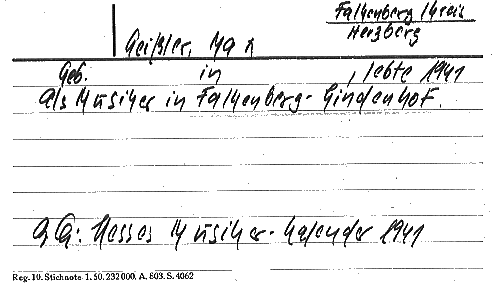 Falkenberg Kreis
Herzberg
Geißler, Max
Geb. in , lebte 1941
als Musiker in Falkenberg-Lindenhof.
QU: Hesses Musiker-Kalender 1941
Reg. 10. Stichnote 1. 50. 232000. A. 803. S. 4062